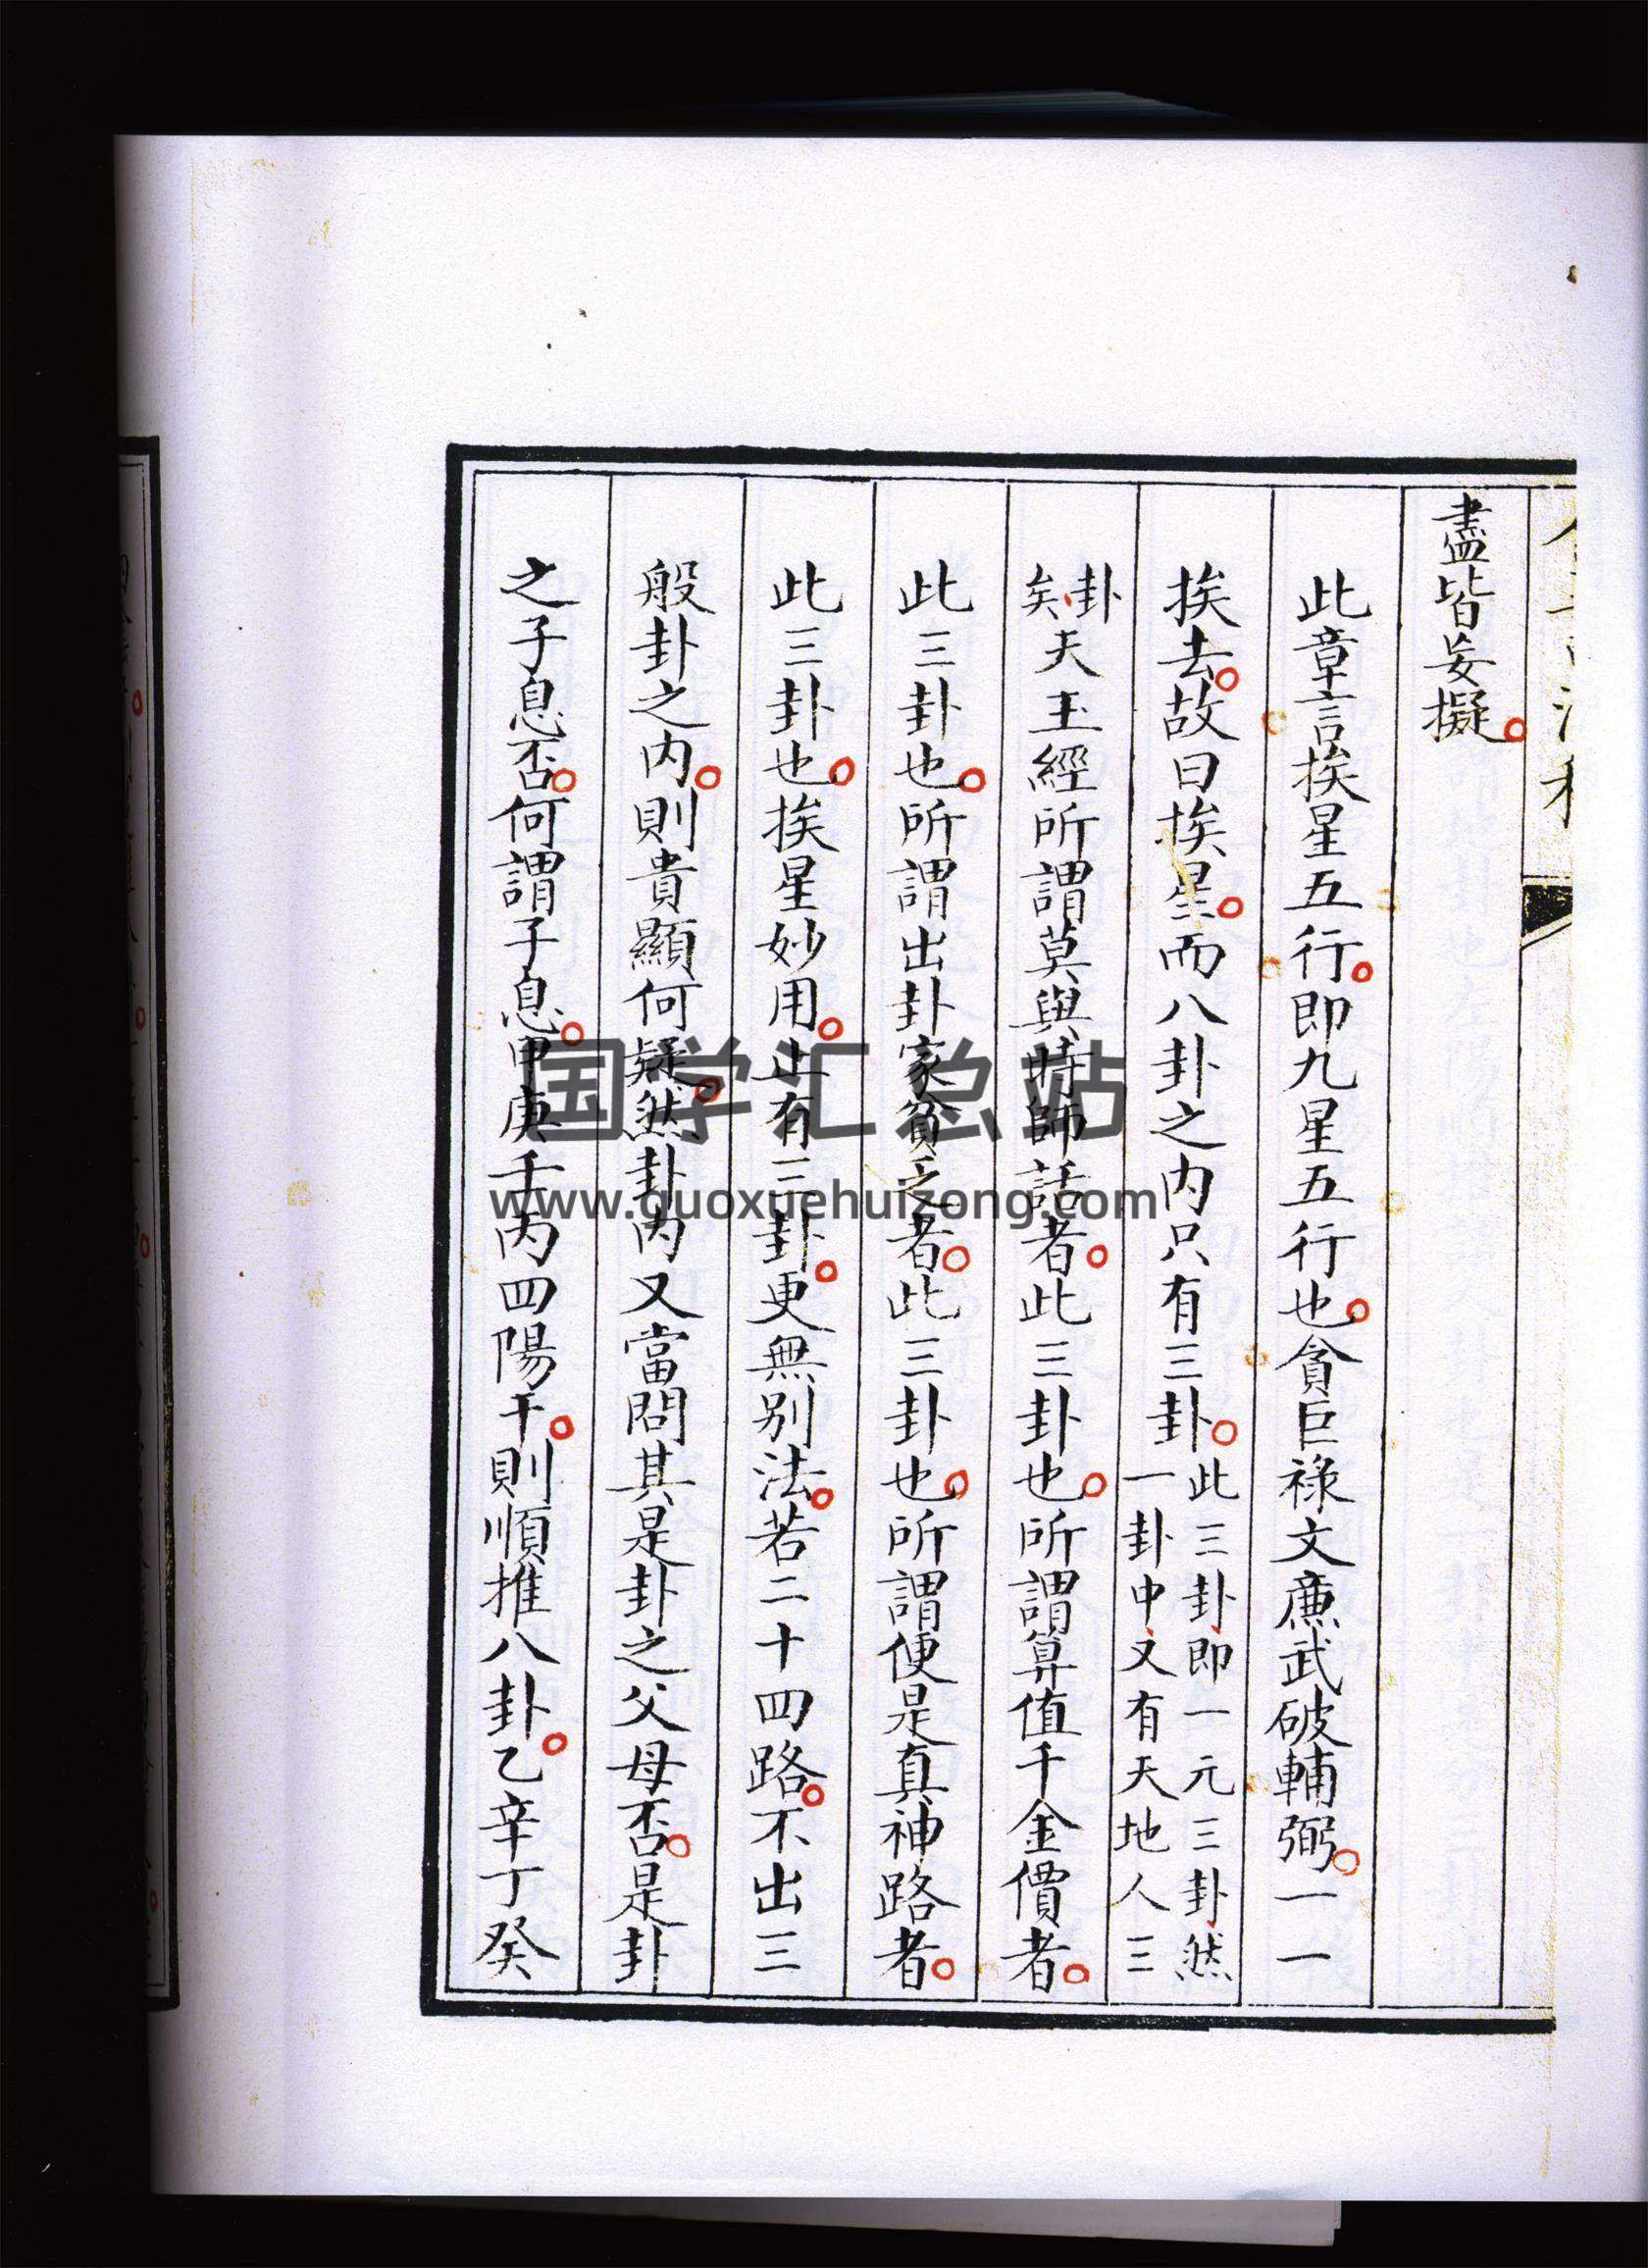 盡皆妄擬
此章言挨星五行即九星五行也貪巨祿文廉武破輔弼一一
挨去故曰挨星而八卦之内只有三卦此三卦即一元三卦然
一卦中又有天地人三
卦
矣天玉經所謂莫與時師話者此三卦也所謂算值千金價者
此三卦也所謂出卦家貧乏者此三卦也所謂便是真神路者
此三卦也挨星妙用止有三卦更無別法若二十四路不出三
般卦之内則貴顯何疑然卦内又當問其是卦之父母否是卦
之子息否何謂子息甲庚壬丙四陽干則順推八卦乙辛丁癸
国学汇总站
www.guoxuehuizong.com